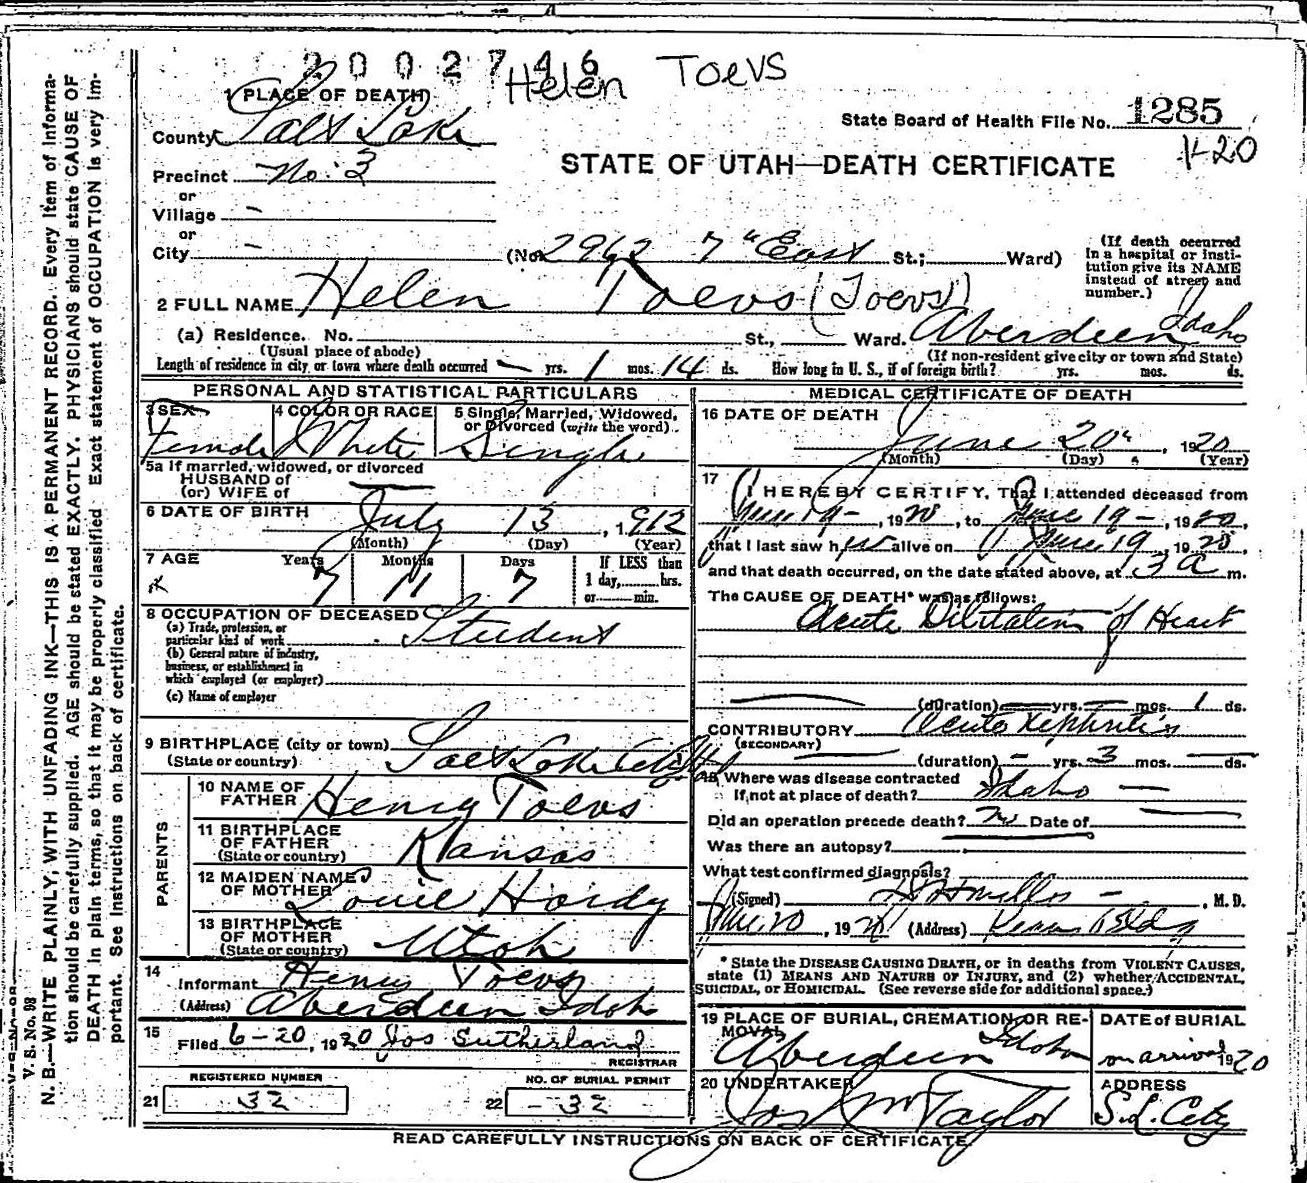 2002746
Helen Toevs
1 PLACE OF DEATH
County Salt Lake
State Board of Health File No. 1285
1-20
Precinct No. 3
STATE OF UTAH—DEATH CERTIFICATE
or
Village –
or
City –
(No. 2962 7" East St.; Ward)
(If death occurred in a hospital or institution give its NAME instead of street and number.)
2 FULL NAME Helen Toevs (Toevs)
(a) Residence. No. St., Ward. Aberdeen Idaho
(Usual place of abode)
(If non-resident give city or town and State)
Length of residence in city or town where death occurred – yrs. 1 mos. 14 ds. How long in U. S., if of foreign birth? yrs. mos. ds.
PERSONAL AND STATISTICAL PARTICULARS
3 SEX Female
4 COLOR OR RACE White
5 Single, Married, Widowed, or Divorced (write the word) Single
5a If married, widowed, or divorced
HUSBAND of
(or) WIFE of
6 DATE OF BIRTH July 13, 1912
(Month) (Day) (Year)
7 AGE Years 7 Months 11 Days 7
If LESS than
1 day, hrs.
or min.
8 OCCUPATION OF DECEASED
(a) Trade, profession, or
particular kind of work Student
(b) General nature of industry,
business, or establishment in
which employed (or employer)
(c) Name of employer
9 BIRTHPLACE (city or town) Salt Lake City
(State or country)
PARENTS
10 NAME OF FATHER Henry Toevs
11 BIRTHPLACE OF FATHER Kansas
(State or country)
12 MAIDEN NAME OF MOTHER Louie Hardy
13 BIRTHPLACE OF MOTHER Utah
(State or country)
14
Informant Henry Toevs
(Address) Aberdeen Idaho
15
Filed 6-20, 1920 Jos Sutherland
REGISTRAR
REGISTERED NUMBER
21 32
NO. OF BURIAL PERMIT
22 - 32
MEDICAL CERTIFICATE OF DEATH
16 DATE OF DEATH
June 20", 1920
(Month) (Day) (Year)
17
I HEREBY CERTIFY, That I attended deceased from
June 19-, 1920, to June 19-, 1920,
that I last saw her alive on June 19, 1920,
and that death occurred, on the date stated above, at 3 a m.
The CAUSE OF DEATH* was as follows:
Acute Dilitation of Heart
(duration) yrs. mos. 1 ds.
CONTRIBUTORY Acute Nephritis
(SECONDARY)
(duration) – yrs. 3 mos. – ds.
18 Where was disease contracted
If not at place of death? Idaho —
Did an operation precede death? No Date of
Was there an autopsy?
What test confirmed diagnosis?
(Signed) M. D.
June 20, 19 (Address) Kearns Bldg
* State the DISEASE CAUSING DEATH, or in deaths from VIOLENT CAUSES,
state (1) MEANS AND NATURE OF INJURY, and (2) whether ACCIDENTAL,
SUICIDAL, or HOMICIDAL. (See reverse side for additional space.)
19 PLACE OF BURIAL, CREMATION OR REMOVAL
Aberdeen Idaho
DATE of BURIAL
on arrival 1920
20 UNDERTAKER
Jos Wm Taylor
ADDRESS
S. L. City
READ CAREFULLY INSTRUCTIONS ON BACK OF CERTIFICATE.
V. S. No. 98
N. B.—WRITE PLAINLY, WITH UNFADING INK—THIS IS A PERMANENT RECORD. Every Item of Informa-
tion should be carefully supplied. AGE should be stated EXACTLY. PHYSICIANS should state CAUSE OF
DEATH in plain terms, so that it may be properly classified. Exact statement of OCCUPATION is very im-
portant. See Instructions on back of certificate.